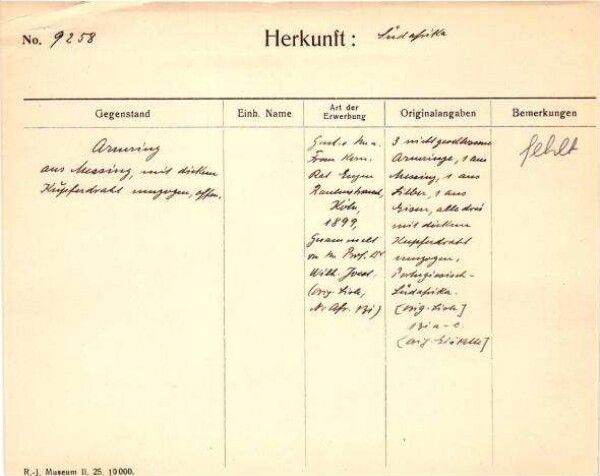 No. 9258
Herkunft: Südafrika
Gegenstand
Einh. Name
Art der
Erwerbung
Originalangaben
Bemerkungen
Armring
aus Messing, mit dickem
Kupferdraht umzogen, offen.
Frau Kom.
Rat Eugen
Rautenstrauch,
Köln,
1899,
Gesammelt
v. Prof. Dr
Wilh. Joest.
(orig. Liste,
Nr Afr. 131)
3 nicht geschlossene
Armringe, 1 aus
Messing, 1 aus
Silber, 1 aus
Eisen, alle drei
mit dickem
Kupferdraht
umzogen,
Portugiesisch-
Südafrika.
[orig. Liste]
131 a-c.
[orig. Etikette]
fehlt
R.-J. Museum II. 25. 10 000.